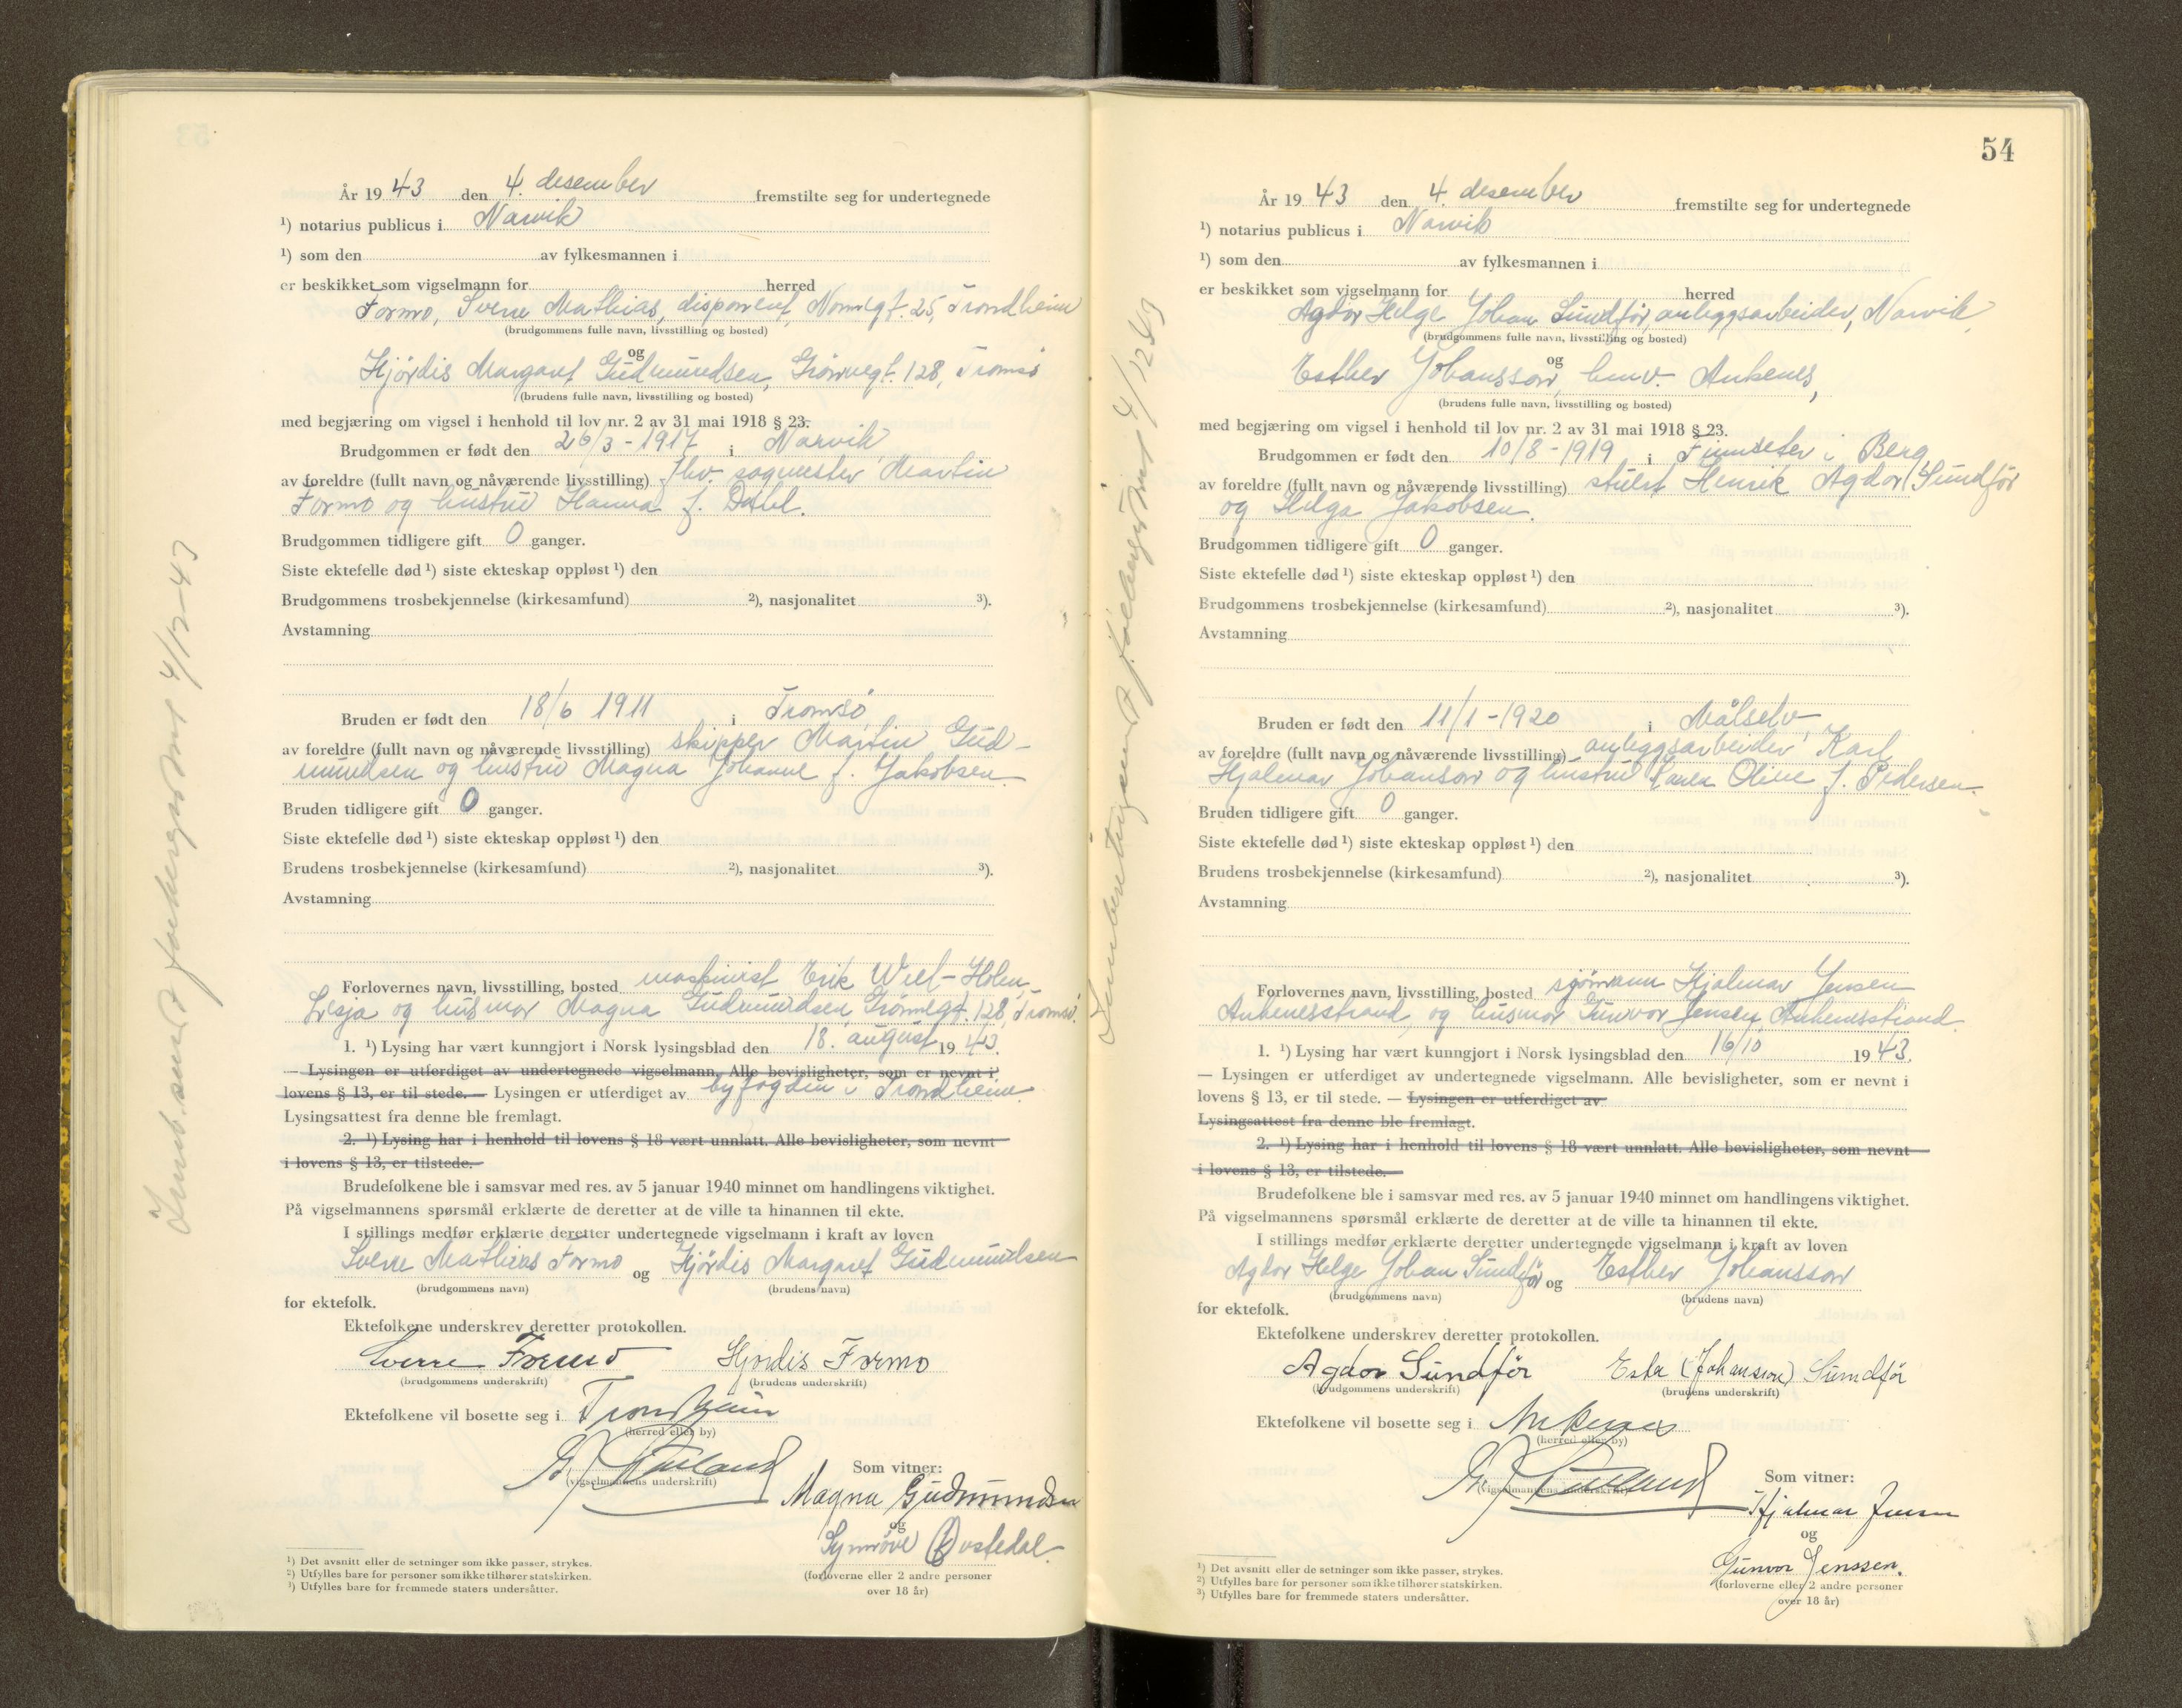 År 1943 den 4. desember fremstilte seg for undertegnede
¹) notarius publicus i Narvik
¹) som den av fylkesmannen i
er beskikket som vigselmann for herred
Formo, Sverre Mathias, disponent, Nonnegt. 25, Trondheim
(brudgommens fulle navn, livsstilling og bosted)
og
Hjördis Margaret Gudmundsen, Grönnegt. 128, Tromsö
(brudens fulle navn, livsstilling og bosted)
med begjæring om vigsel i henhold til lov nr. 2 av 31 mai 1918 § 23.
Brudgommen er født den 26/3 - 1917 i Narvik
av foreldre (fullt navn og nåværende livsstilling) fhv. Martin
Formo og hustru Hanna f. Dahl.
Brudgommen tidligere gift 0 ganger.
Siste ektefelle død ¹) siste ekteskap oppløst ¹) den
Brudgommens trosbekjennelse (kirkesamfund) ²), nasjonalitet ³).
Avstamning
Bruden er født den 18/6 1911 i Tromsö
av foreldre (fullt navn og nåværende livsstilling) skipper Martin Gud-
mundsen og hustru Magna Johanne f. Jakobsen
Bruden tidligere gift 0 ganger.
Siste ektefelle død ¹) siste ekteskap oppløst ¹) den
Brudens trosbekjennelse (kirkesamfund) ²), nasjonalitet ³).
Avstamning
Forlovernes navn, livsstilling, bosted maskinist Erik Holm,
Lesja og husmor Magna Gudmundsen, Grönnegt. 128, Tromsö.
1. ¹) Lysing har vært kunngjort i Norsk lysingsblad den 18. august 1943.
— Lysingen er utferdiget av undertegnede vigselmann. Alle bevisligheter, som er nevnt i
lovens § 13, er til stede. — Lysingen er utferdiget av byfogden i Trondheim
Lysingsattest fra denne ble fremlagt.
2. ¹) Lysing har i henhold til lovens § 18 vært unnlatt. Alle bevisligheter, som nevnt
i lovens § 13, er tilstede.
Brudefolkene ble i samsvar med res. av 5 januar 1940 minnet om handlingens viktighet.
På vigselmannens spørsmål erklærte de deretter at de ville ta hinannen til ekte.
I stillings medfør erklærte deretter undertegnede vigselmann i kraft av loven
Sverre Mathias Formo og Hjördis Margaret Gudmundsen
(brudgommens navn) (brudens navn)
for ektefolk.
Ektefolkene underskrev deretter protokollen.
Sverre Formo Hjordis Formo
(brudgommens underskrift) (brudens underskrift)
Ektefolkene vil bosette seg i Trondheim
(herred eller by)
(vigselmannens underskrift)
Som vitner:
Magna Gudmundsen
og
Synnöve Østedal.
(forloverne eller 2 andre personer
over 18 år)
¹) Det avsnitt eller de setninger som ikke passer, strykes.
²) Utfylles bare for personer som ikke tilhører statskirken.
³) Utfylles bare for fremmede staters undersåtter.
4/12-43
54
År 1943 den 4. desember fremstilte seg for undertegnede
¹) notarius publicus i Narvik
¹) som den av fylkesmannen i
er beskikket som vigselmann for herred
Agdor Helge Johan Sundför, anleggsarbeider, Narvik
(brudgommens fulle navn, livsstilling og bosted)
og
Esther Johansson, Ankenes,
(brudens fulle navn, livsstilling og bosted)
med begjæring om vigsel i henhold til lov nr. 2 av 31 mai 1918 § 23.
Brudgommen er født den 10/8 - 1919 i Finnseter i Berg
av foreldre (fullt navn og nåværende livsstilling) Henrik Agdor Sundför
og Helga Jakobsen.
Brudgommen tidligere gift 0 ganger.
Siste ektefelle død ¹) siste ekteskap oppløst ¹) den
Brudgommens trosbekjennelse (kirkesamfund) ²), nasjonalitet ³).
Avstamning
Bruden er født den 11/1 - 1920 i Målselv
av foreldre (fullt navn og nåværende livsstilling) anleggsarbeider Karl
Hjalmar Johanson og hustru Karen Oline f. Pedersen.
Bruden tidligere gift 0 ganger.
Siste ektefelle død ¹) siste ekteskap oppløst ¹) den
Brudens trosbekjennelse (kirkesamfund) ²), nasjonalitet ³).
Avstamning
Forlovernes navn, livsstilling, bosted sjömann Hjalmar Jensen
Ankenesstrand og husmor Gunvor Jensen, Ankenesstrand
1. ¹) Lysing har vært kunngjort i Norsk lysingsblad den 16/10 1943.
— Lysingen er utferdiget av undertegnede vigselmann. Alle bevisligheter, som er nevnt i
lovens § 13, er til stede. — Lysingen er utferdiget av
Lysingsattest fra denne ble fremlagt.
2. ¹) Lysing har i henhold til lovens § 18 vært unnlatt. Alle bevisligheter, som nevnt
i lovens § 13, er tilstede.
Brudefolkene ble i samsvar med res. av 5 januar 1940 minnet om handlingens viktighet.
På vigselmannens spørsmål erklærte de deretter at de ville ta hinannen til ekte.
I stillings medfør erklærte deretter undertegnede vigselmann i kraft av loven
Agdor Helge Johan Sundför og Esther Johansson
(brudgommens navn) (brudens navn)
for ektefolk.
Ektefolkene underskrev deretter protokollen.
Agdor Sundför Ester (Johansson) Sundför
(brudgommens underskrift) (brudens underskrift)
Ektefolkene vil bosette seg i Ankenes
(herred eller by)
(vigselmannens underskrift)
Som vitner:
Hjalmar Jensen
og
Gunvor Jenssen.
(forloverne eller 2 andre personer
over 18 år)
¹) Det avsnitt eller de setninger som ikke passer, strykes.
²) Utfylles bare for personer som ikke tilhører statskirken.
³) Utfylles bare for fremmede staters undersåtter.
4/12 43